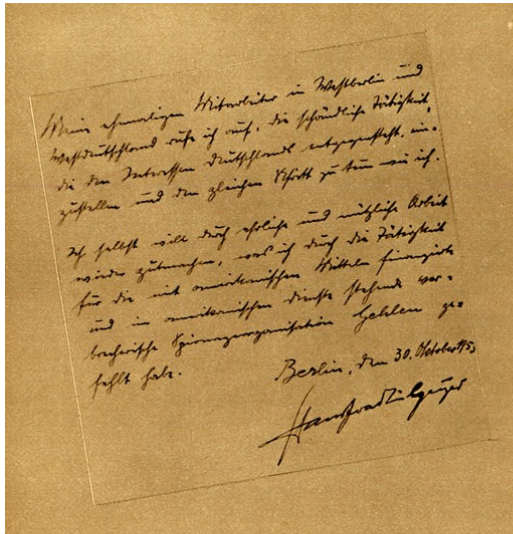 Meine ehemaligen Mitarbeiter in Westberlin und
Westdeutschland rufe ich auf, die schändliche Tätigkeit,
die den Interessen Deutschlands entgegensteht, ein-
zustellen und den gleichen Schritt zu tun wie ich.
Ich selbst will durch ehrliche und nützliche Arbeit
wieder gutmachen, was ich durch die Tätigkeit
für die mit amerikanischen Mitteln finanzierte
und im amerikanischen Dienste stehende ver-
brecherische Spionageorganisation Gehlen ge-
fehlt habe.
Berlin, den 30. Oktober 1953